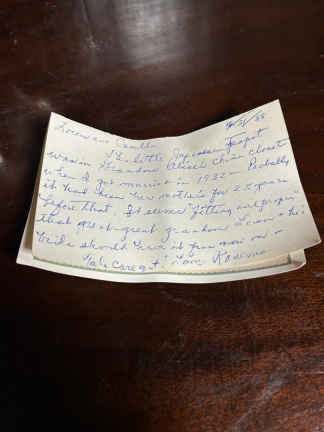 9/3/88
The little Japanese Teapot
was in Grandma China Closet
when I got married in 1932 - Probably
it had been her mother's for 25 years
before that. It seems fitting and proper
that great-great grandson and his
bride should have it from now on -
Take care of it! Love